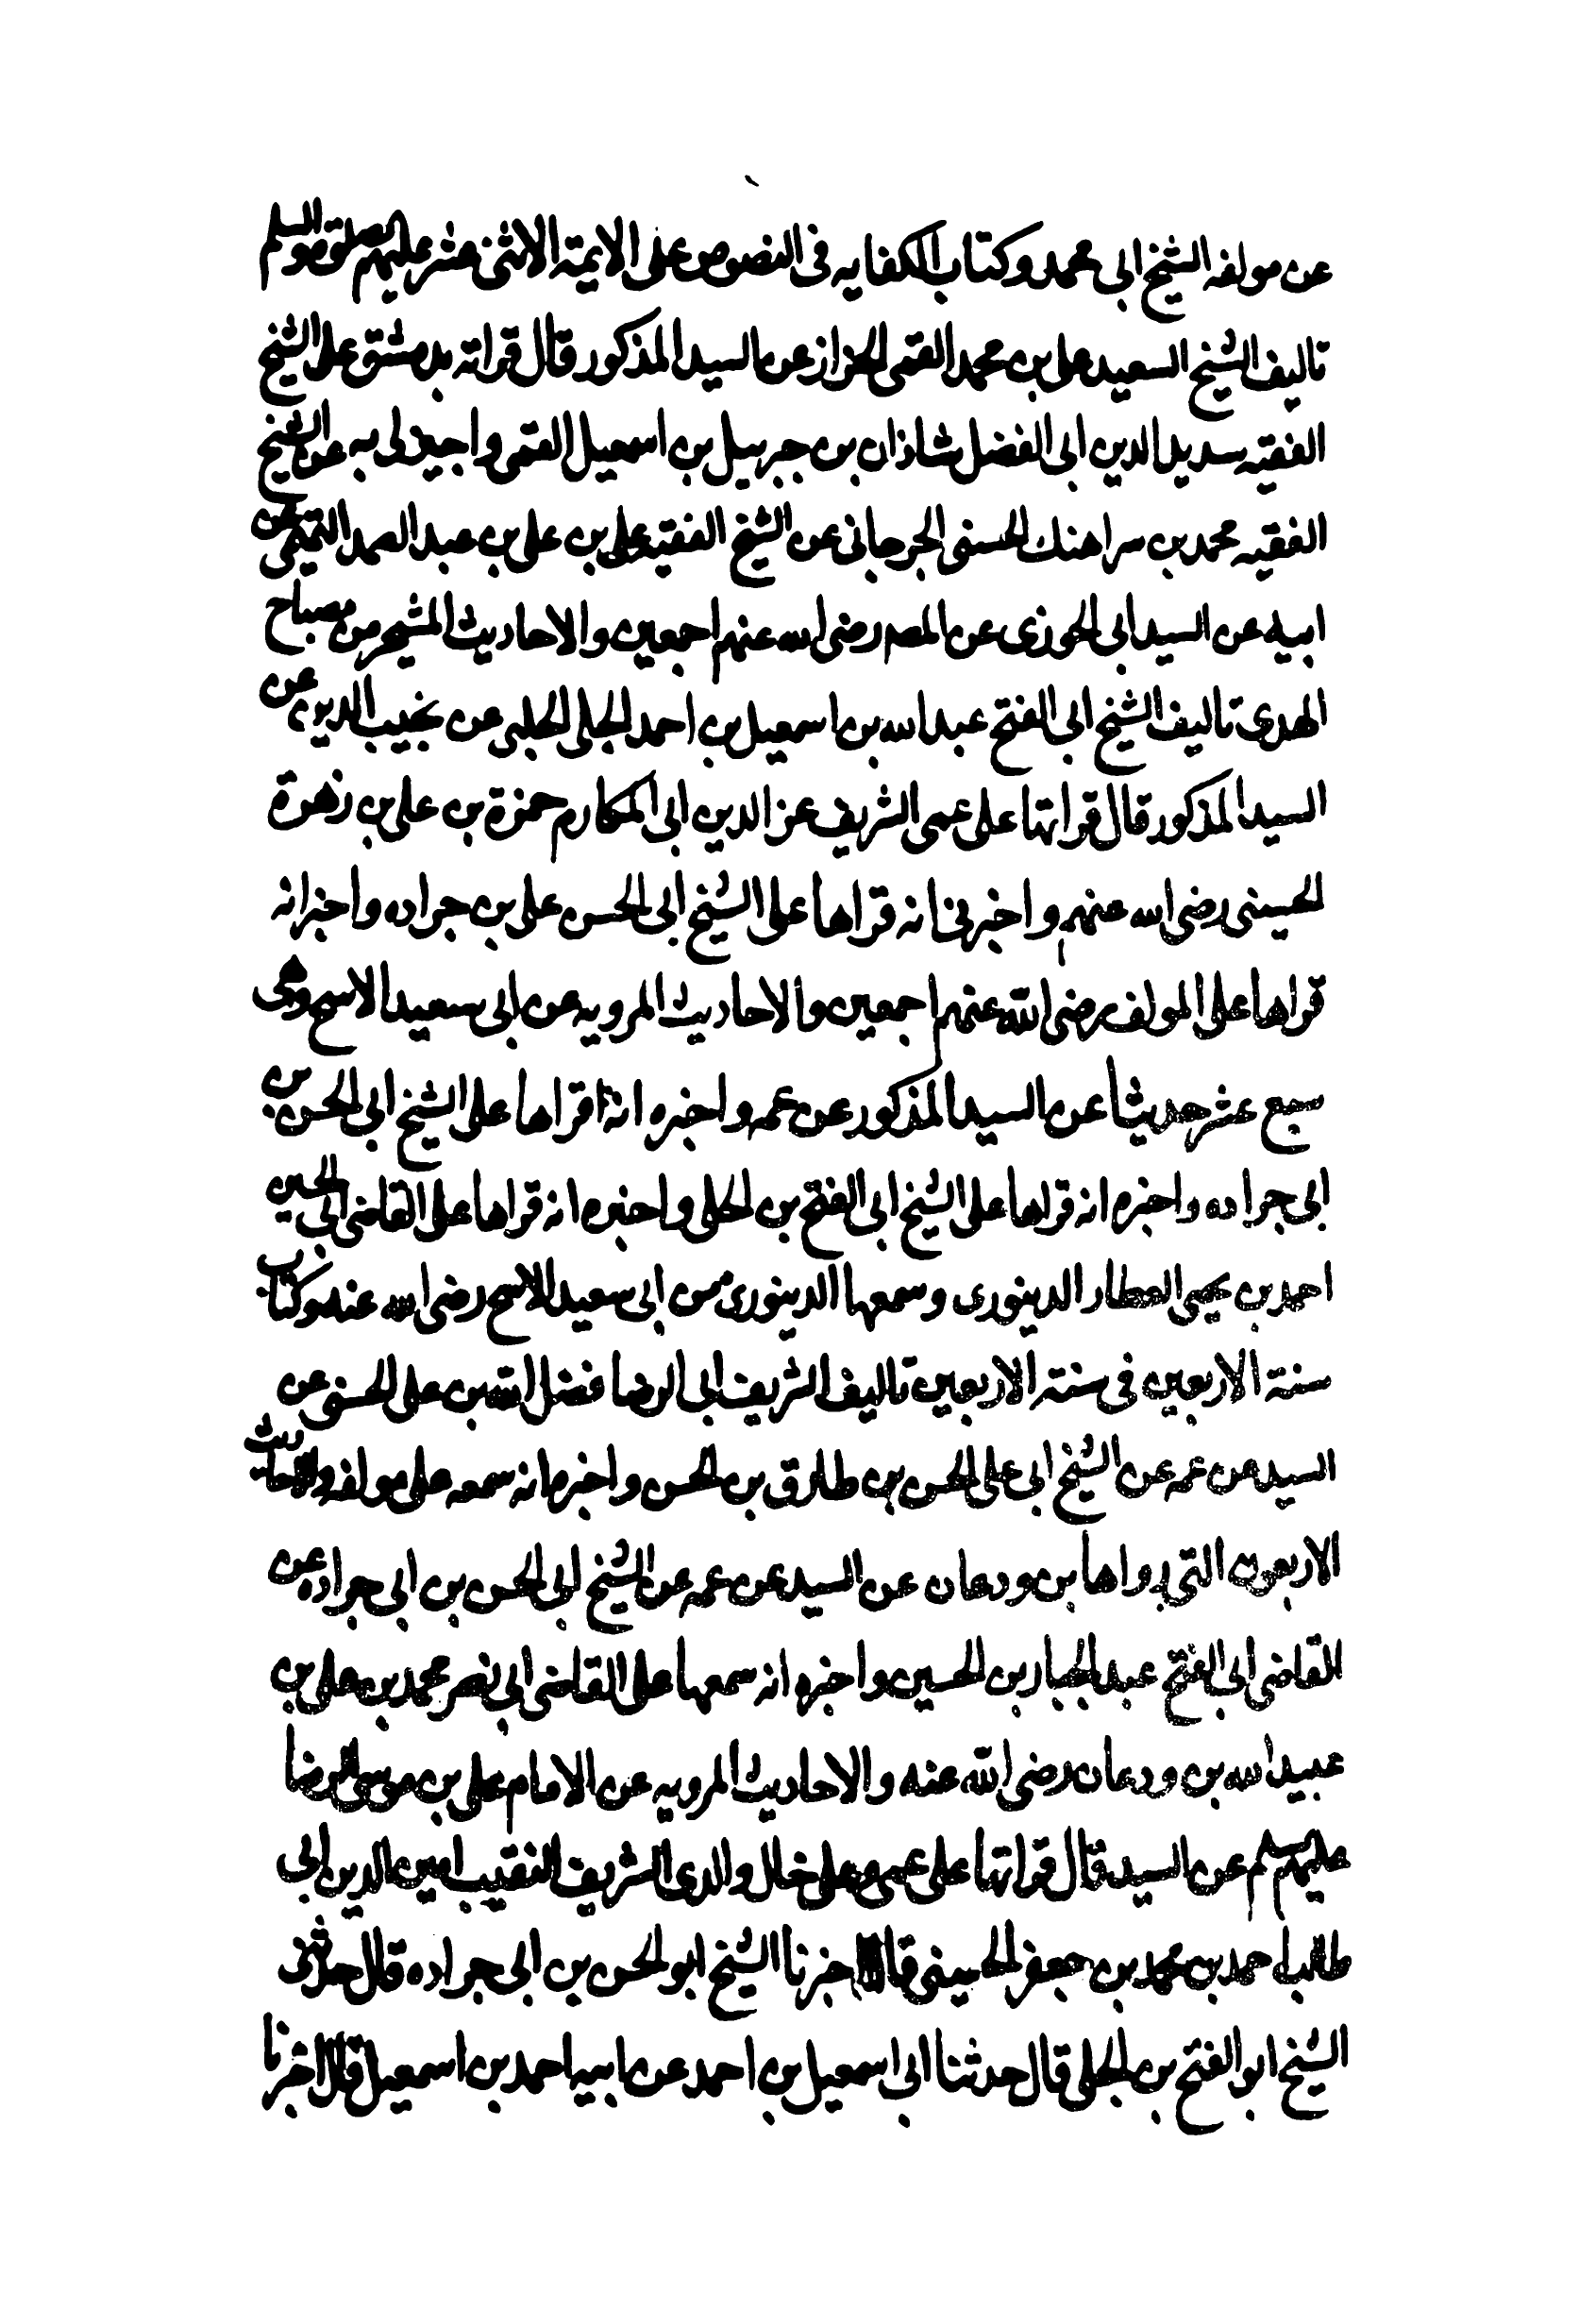 عن مولفه الشيخ ابى محمد وكتاب الكفايه فى النصوص على الايمة الاثنى عشر عليهم الصلوة والسلم
تاليف الشيخ السعيد على بن محمد القمى الخزاز عن السيد المذكور قال قراته بدمشق على الشيخ
الفقيه سديد الدين ابى الفضل شاذان بن جبريل بن اسمعيل القمى واجيز لى به عن الشيخ
الفقيه محمد بن سراهنك الحسنى الجرجانى عن الشيخ الفقيه على بن على بن عبد الصمد التميمى عن
ابيه عن السيد ابى الجوزى عن المصه رضى الله عنهم اجمعين والاحاديث من مصباح
الهدى تاليف الشيخ ابى الفتح عبد الله بن اسمعيل بن احمد الجلى الحلبى عن نجيب الدين عن
السيد المذكور قال قراتها على عمى الشريف عز الدين ابى المكارم حمزة بن على بن زهرة
الحسينى رضى الله عنهم واخبرنى انه قراها على الشيخ ابى الحسن على بن جراده واخبر انه
قراها على المولف رضى الله عنهم اجمعين والاحاديث المرويه عن ابى سعيد الاسج وهى
سبع عشر حديثا عن السيد المذكور عن عمه واخبره انه قراها على الشيخ ابى الحسن بن
ابى جراده واخبره انه قراها على الشيخ ابى الفتح بن الجلى واخبره انه قراها على القاضى ابى الحسين
احمد بن يحيى العطار الدينورى وسمعها الدينورى من ابى سعيد الاسج رضى الله عنه وكتاب
سنة الاربعين فى سنة الاربعين تاليف الشريف ابى الرضا فضل الله بن على الحسنى عن
السيد عن عمه عن الشيخ ابى على الحسن بن طارق بن الحسن واخبره انه سمعه على مولفه والاحاديث
الاربعون التى رواها بن ودعان عن السيد عن عمه عن الشيخ ابى الحسن بن ابى جراده عن
القاضى ابى الفتح عبد الجبار بن الحسين واخبره انه سمعها على القاضى ابى نصر محمد بن على بن
عبيد الله بن ودعان رضى الله عنه والاحاديث المرويه عن الامام على بن موسى الرضا
عليهم سلم عن السيد قال قراتها على عمى وعلى خال والدى الشريف النقيب امين الدين ابى
طالب احمد بن محمد بن جعفر الحسينى قالا اخبرنا الشيخ ابو الحسن بن ابى جراده قال حدثنى
الشيخ ابو الفتح بن الجلى قال حدثنا ابى اسمعيل بن احمد عن ابيه احمد بن اسمعيل قال اخبرنا